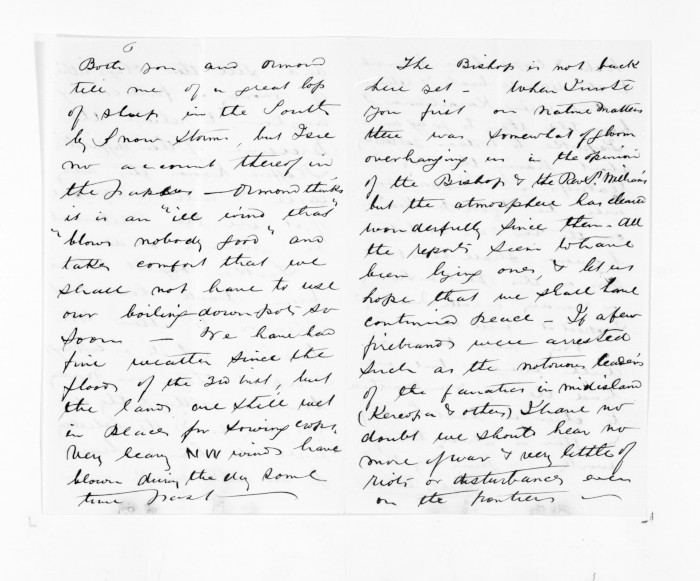 6
Both you and Ormond
tell me of a great loss
of sheep in the South
by Snow Storms, but I see
no account thereof in
the papers — Ormond thinks
it is an "ill wind that"
"blows nobody good" and
takes comfort that we
shall not have to use
our boiling down pots so
soon — We have had
fine weather since the
floods of the 3d inst, but
the lands are still wet
in places for sowing crops.
Very heavy NW winds have
blown during the day some
time past —
The Bishop is not back
here yet — When I wrote
you first on Native matters
there was somewhat of gloom
overhanging us in the opinion
of the Bishop & the Revd. Williams
but the atmosphere has cleared
wonderfully since then. All
the reports seem to have
been lying ones, & let us
hope that we shall have
continued peace — If a few
firebrands were arrested
such as the notorious leaders
of the fanatics in mid island
(Kereopa & others) I have no
doubt we should hear no
more of war & very little of
riots or disturbances even
on the frontiers —